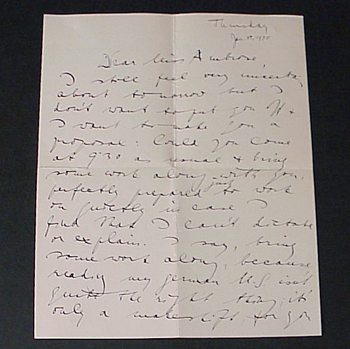 Thursday
Dear Miss Ambrose,
I still feel very uncertain
about tomorrow but I
don't want to put you off.
I want to make you a
proposal: Could you come
at 9'30 as usual & bring
some work along with you,
perfectly prepared to work
on quietly in case I
find that I can't dictate
or explain. I say, bring
some work along, because
reading my german M.S isn't
quite the right thing, it's
only a makeshift for you